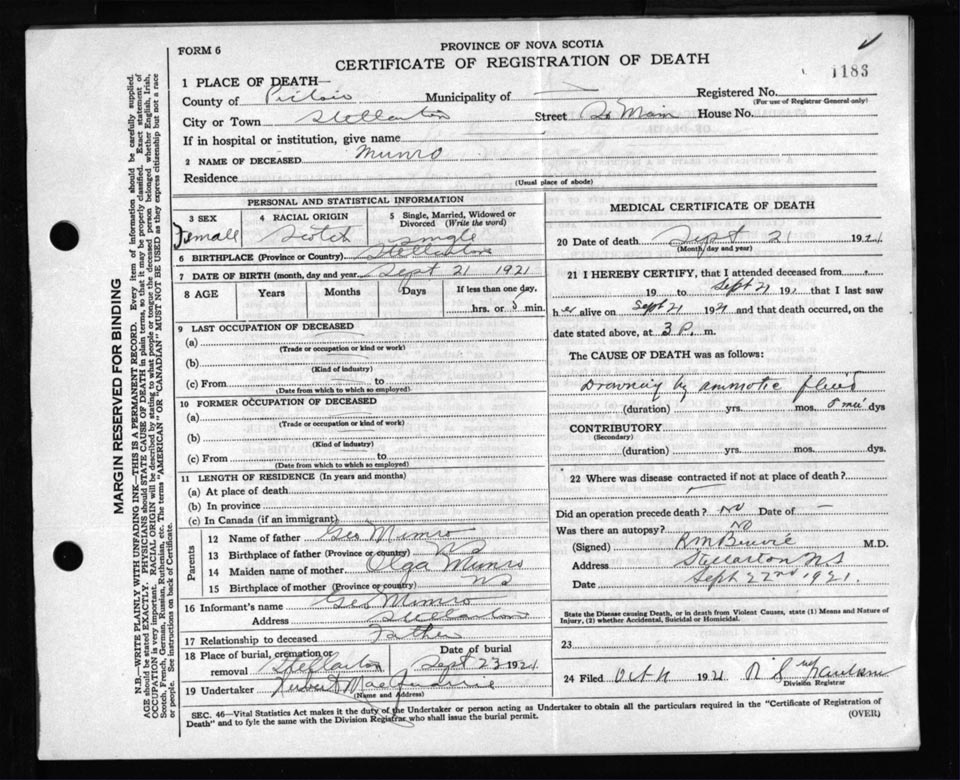 FORM 6
PROVINCE OF NOVA SCOTIA
CERTIFICATE OF REGISTRATION OF DEATH
1183
1 PLACE OF DEATH—
County of Pictou Municipality of — Registered No.
(For use of Registrar General only)
City or Town Stellarton Street So Main House No.
If in hospital or institution, give name
2 NAME OF DECEASED Munro
Residence
(Usual place of abode)
PERSONAL AND STATISTICAL INFORMATION
3 SEX Female
4 RACIAL ORIGIN Scotch
5 Single, Married, Widowed or Divorced (Write the word) Single
6 BIRTHPLACE (Province or Country) Stellarton
7 DATE OF BIRTH (month, day and year) Sept 21 1921
8 AGE Years Months Days If less than one day, hrs. or 8 min.
9 LAST OCCUPATION OF DECEASED
(a)
(Trade or occupation or kind of work)
(b)
(Kind of industry)
(c) From to
(Date from which to which so employed)
10 FORMER OCCUPATION OF DECEASED
(a)
(Trade or occupation or kind of work)
(b)
(Kind of industry)
(c) From to
(Date from which to which so employed)
11 LENGTH OF RESIDENCE (In years and months)
(a) At place of death
(b) In province
(c) In Canada (if an immigrant)
Parents
12 Name of father Geo Munro
13 Birthplace of father (Province or country) NS
14 Maiden name of mother Olga Munro
15 Birthplace of mother (Province or country) NS
16 Informant's name Geo Munro
Address Stellarton
17 Relationship to deceased Father
18 Place of burial, cremation or removal Stellarton Date of burial Sept 23 1921
19 Undertaker MacQuarrie
(Name and Address)
MEDICAL CERTIFICATE OF DEATH
20 Date of death Sept 21 1921
(Month, day and year)
21 I HEREBY CERTIFY, that I attended deceased from
19 to Sept 21 192 that I last saw
her alive on Sept 21 1921 and that death occurred, on
date stated above, at 3 P. m.
The CAUSE OF DEATH was as follows:
Drowning by ammotic fluid
(duration) yrs. mos. 8 min dys
CONTRIBUTORY
(Secondary)
(duration) yrs. mos. dys
22 Where was disease contracted if not at place of death?
Did an operation precede death? NO Date of —
Was there an autopsy? NO
(Signed) M.D.
Address Stellarton NS
Date Sept 22nd 1921.
State the Disease causing Death, or in death from Violent Causes, state (1) Means and Nature of
Injury, (2) whether Accidental, Suicidal or Homicidal.
23
24 Filed Oct 1921
Division Registrar
SEC. 46—Vital Statistics Act makes it the duty of the Undertaker or person acting as Undertaker to obtain all the particulars required in the "Certificate of Registration of
Death" and to fyle the same with the Division Registrar who shall issue the burial permit.
(OVER)
MARGIN RESERVED FOR BINDING
N.B.—WRITE PLAINLY WITH UNFADING INK—THIS IS A PERMANENT RECORD. Every item of information should be carefully supplied.
AGE should be stated EXACTLY. PHYSICIANS should STATE CAUSE OF DEATH in plain terms, so that it may be properly classified. Exact statement of
OCCUPATION is very important. RACIAL ORIGIN will be described by stating to what people or tongue the deceased person belonged whether English, Irish,
Scotch, French, German, Russian, Ruthenian, etc. The terms "AMERICAN" OR "CANADIAN" MUST NOT BE USED as they express citizenship but not a race
or people. See instructions on back of Certificate.